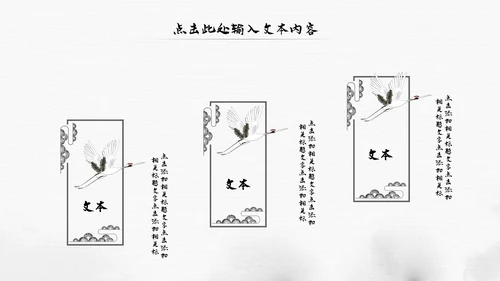 点击此处输入文本内容
文本
点击添加相关标题文字点击添加
相关标题文字点击添加相关标
文本
点击添加相关标题文字点击添加
相关标题文字点击添加相关标
文本
点击添加相关标题文字点击添加
相关标题文字点击添加相关标